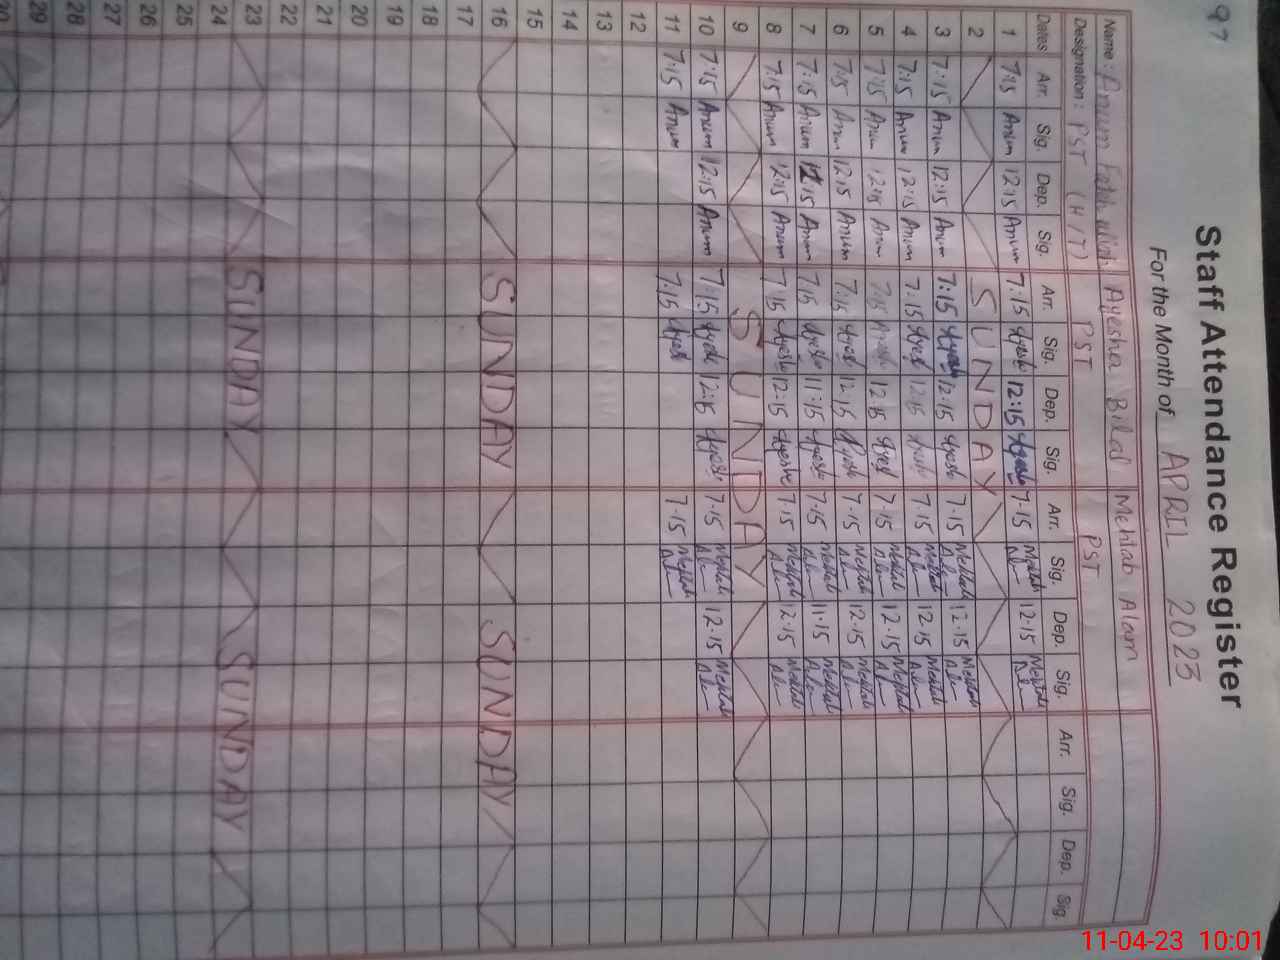 97
Staff Attendance Register
For the Month of APRIL 2023
Name: Anum Fateh ullah Ayesha Bilal Mehtab Alam
Designation: PST (H/T) PST PST
Dates Arr. Sig. Dep. Sig. Arr. Sig. Dep. Sig. Arr. Sig. Dep. Sig. Arr. Sig. Dep. Sig.
1 7:15 Anum 12:15 Anum 7:15 Ayesha 12:15 Ayesha 7.15 Mehtab Alam 12.15 Mehtab Alam
2 SUNDAY
3 7:15 Anum 12:15 Anum 7:15 Ayesha 12:15 Ayesha 7.15 Mehtab Alam 12.15 Mehtab Alam
4 7:15 Anum 12:15 Anum 7:15 Ayesha 12:15 Ayesha 7.15 Mehtab Alam 12.15 Mehtab Alam
5 7:15 Anum 12:15 Anum 7:15 12:15 Ayesha 7.15 Mehtab Alam 12.15 Mehtab Alam
6 7:15 Anum 12:15 Anum 7:15 Ayesha 12:15 Ayesha 7.15 Mehtab Alam 12.15 Mehtab Alam
7 7:15 Anum 15 Anum 7:15 Ayesha 11:15 Ayesha 7.15 Mehtab Alam 11.15 Mehtab Alam
8 7:15 Anum 12:15 Anum 7:15 Ayesha 12:15 Ayesha 7.15 Mehtab Alam 12.15 Mehtab Alam
9 SUNDAY
10 7:15 Anum 12:15 Anum 7:15 Ayesha 12:15 Ayesha 7.15 Mehtab Alam 12.15 Mehtab Alam
11 7:15 Anum 7:15 Ayesha 7.15 Mehtab Alam
12
13
14
15
16 SUNDAY SUNDAY
17
18
19
20
21
22
23 SUNDAY SUNDAY
24
25
26
27
28
29
30
11-04-23 10:01